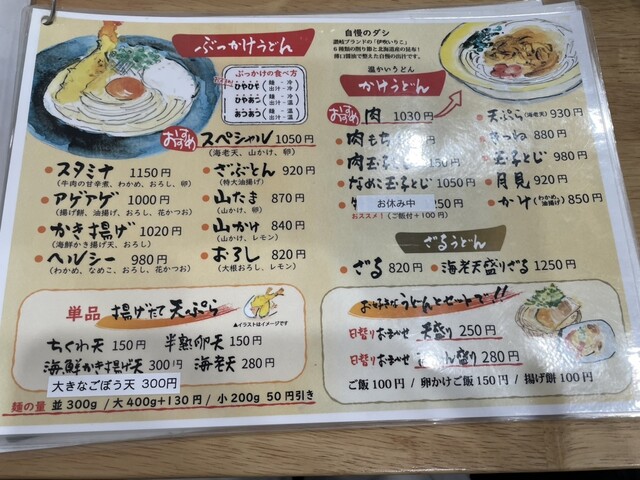 ぶっかけうどん
ぶっかけの食べ方
ひやひや (麺 - 冷 出汁 - 冷)
ひやあつ (麺 - 冷 出汁 - 温)
あつあつ (麺 - 温 出汁 - 温)
おすすめ スペシャル 1050円
(海老天、山かけ、卵)
・スタミナ 1150円
(牛肉の甘辛煮、わかめ、おろし、卵)
・アゲアゲ 1000円
(揚げ餅、油揚げ、おろし、花かつお)
・かき揚げ 1020円
(海鮮かき揚げ天、おろし)
・ヘルシー 980円
(わかめ、なめこ、おろし、花かつお)
・ざぶとん 920円
(特大油揚げ)
・山たま 870円
(山かけ、卵)
・山かけ 840円
(山かけ、レモン)
・おろし 820円
(大根おろし、レモン)
単品 揚げたて天ぷら
▲イラストはイメージです
ちくわ天 150円 半熟卵天 150円
海鮮かき揚げ天 300円 海老天 280円
大きなごぼう天 300円
麺の量 並300g / 大400g+130円 / 小200g 50円引き
自慢のダシ
讃岐ブランドの「伊吹いりこ」
6種類の削り節と北海道産の昆布!
薄口醤油で整えた自慢の出汁です。
温かいうどん
かけうどん
おすすめ 肉 1030円
・肉もち
・肉玉子とじ 150円
・なめこ玉子とじ 1050円
お休み中 250円
おススメ!(ご飯付+100円)
・天ぷら(海老天) 930円
・きつね 880円
・玉子とじ 980円
・月見 920円
・かけ(わかめ、油揚げ) 850円
ざるうどん
・ざる 820円 ・海老天盛りざる 1250円
お好きなうどんとセットで!!
日替りおまかせ 天盛り 250円
日替りおまかせ ん盛り 280円
ご飯100円 / 卵かけご飯150円 / 揚げ餅100円